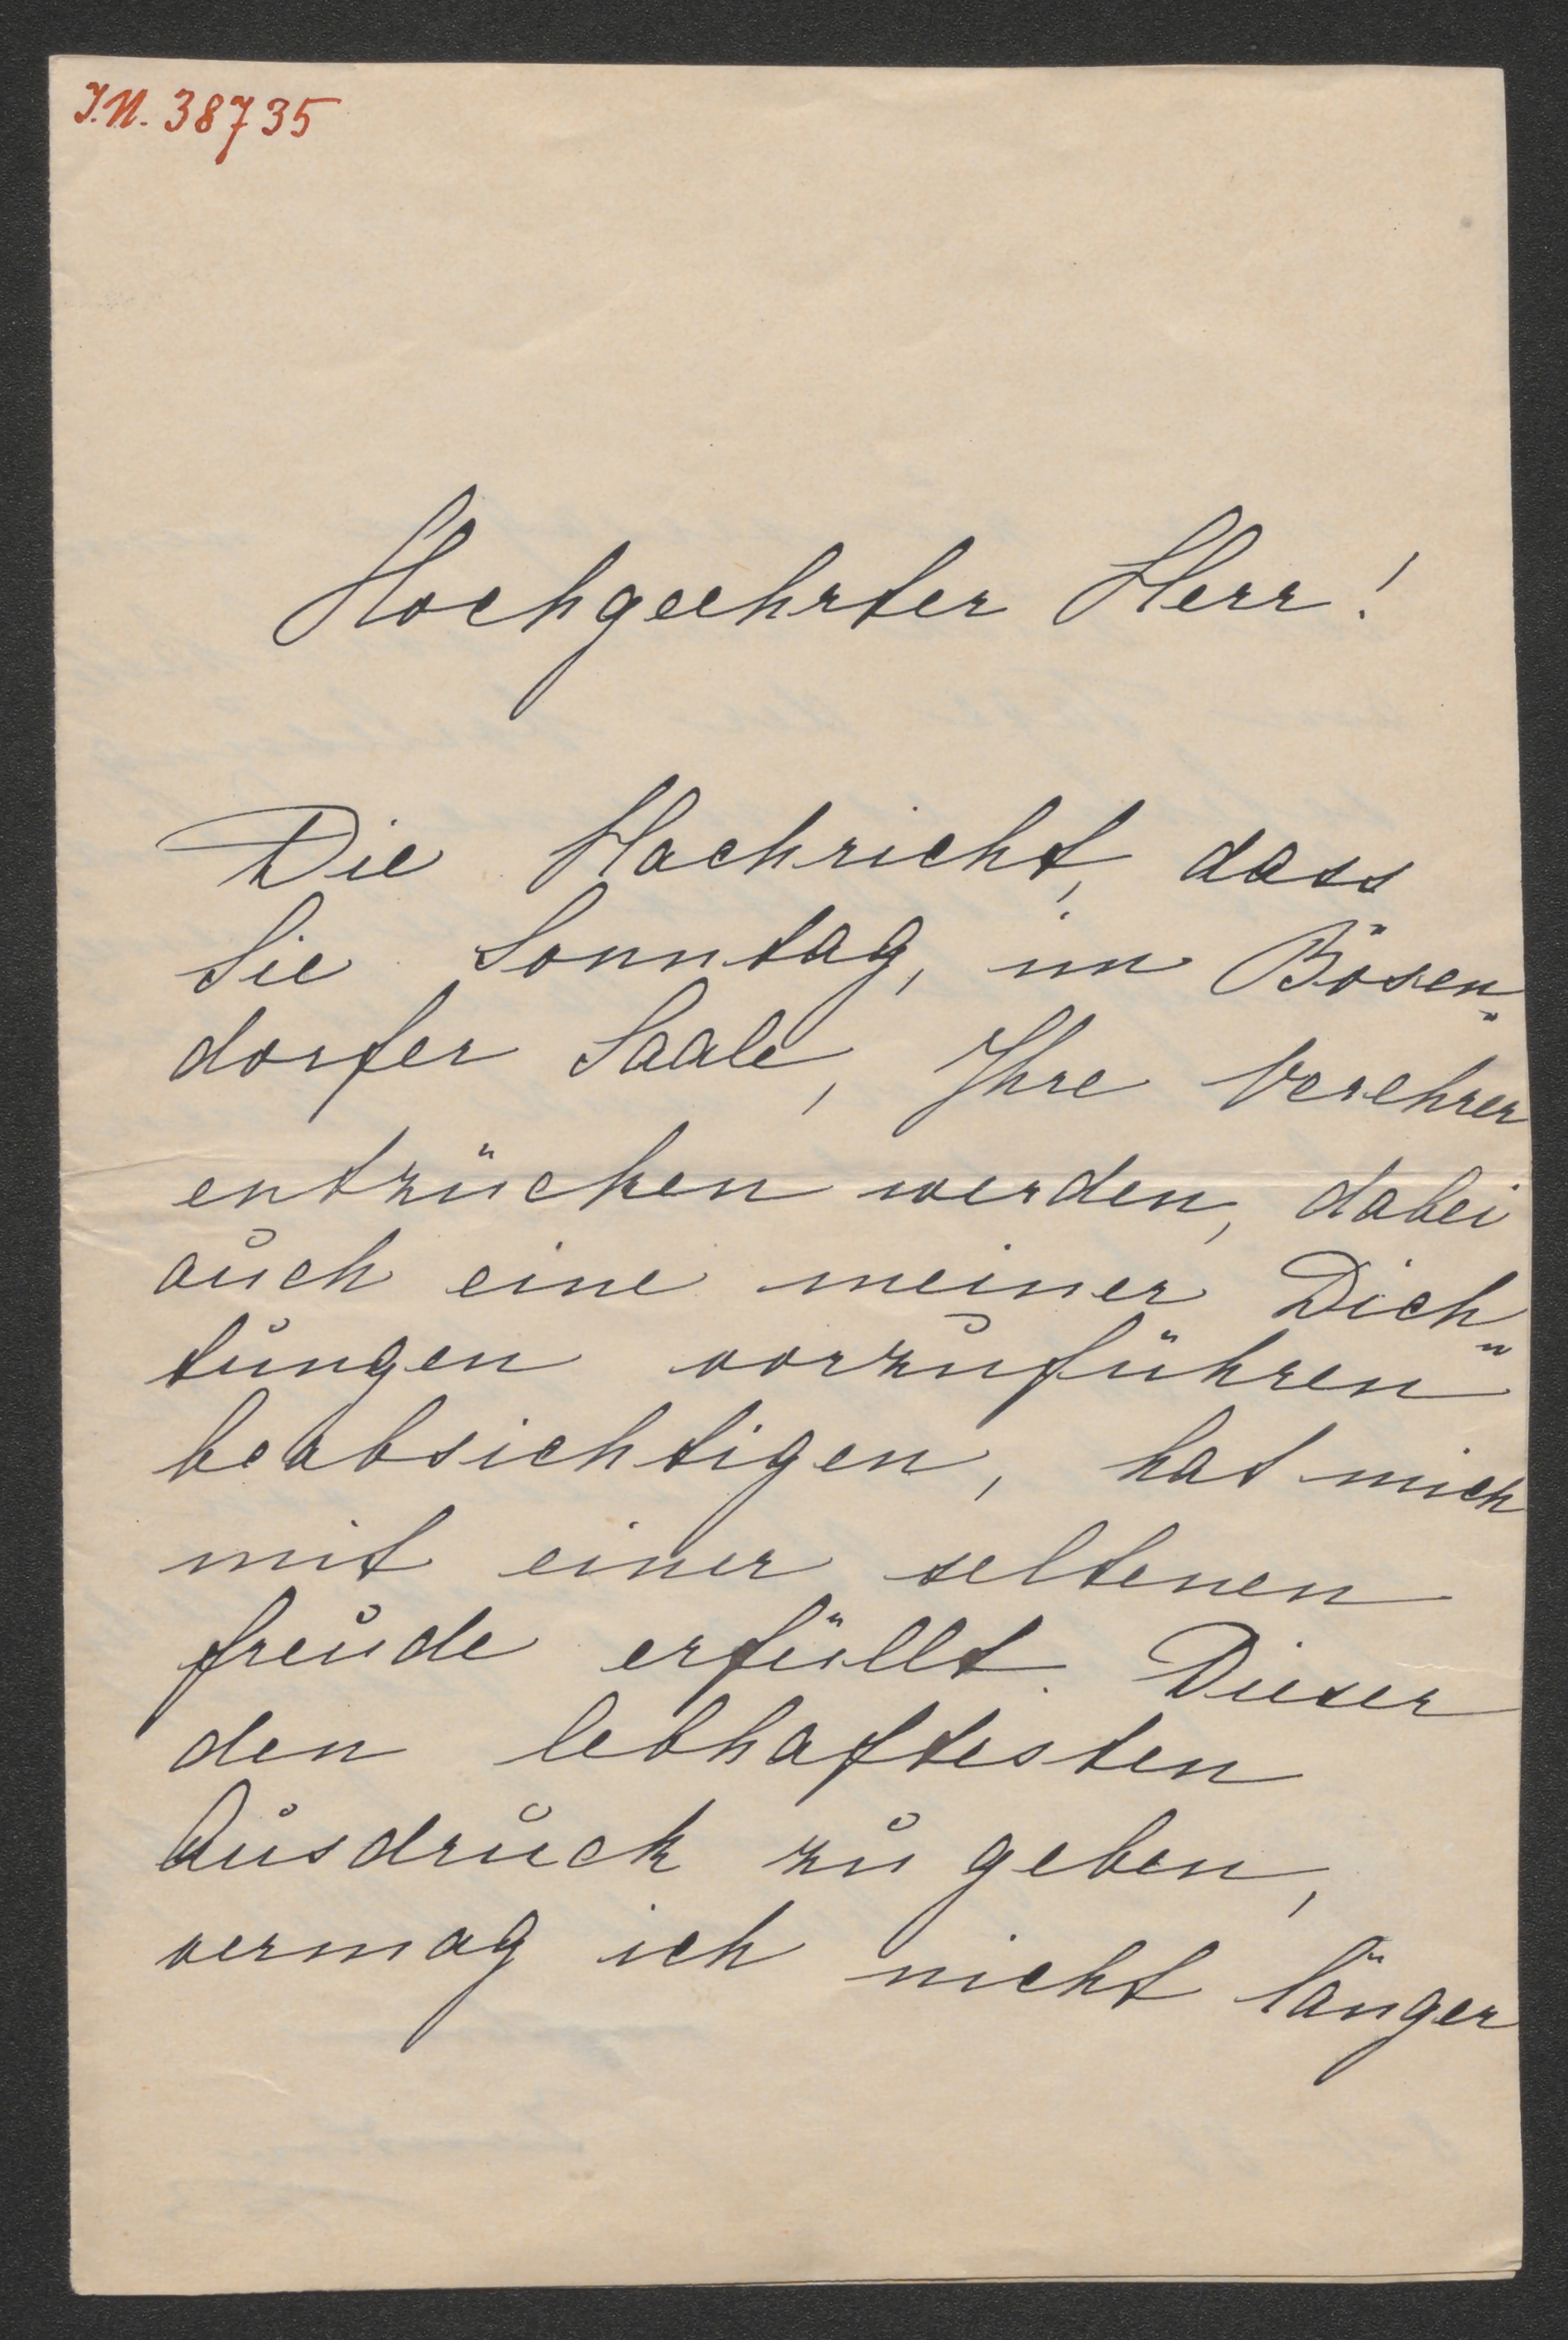 I.N. 38735
Hochgeehrter Herr!
Die Nachricht, dass
Sie Sonntag, im Bösen-
dorfer Saale, Ihre Verehrer
entzücken werden, dabei
auch eine meiner Dich-
tungen vorzuführen
beabsichtigen, hat mich
mit einer seltenen
Freude erfüllt. Dieser
den lebhaftesten
Ausdruck zu geben,
vermag ich nicht länger